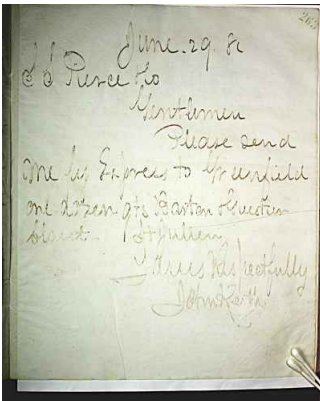 263
June. 29. 8
S S Pierce & Co
Gentlemen
Please send
me by Express to Greenfield
one dozen qts Barton & Guestier
St Julien
Yours Respectfully
John